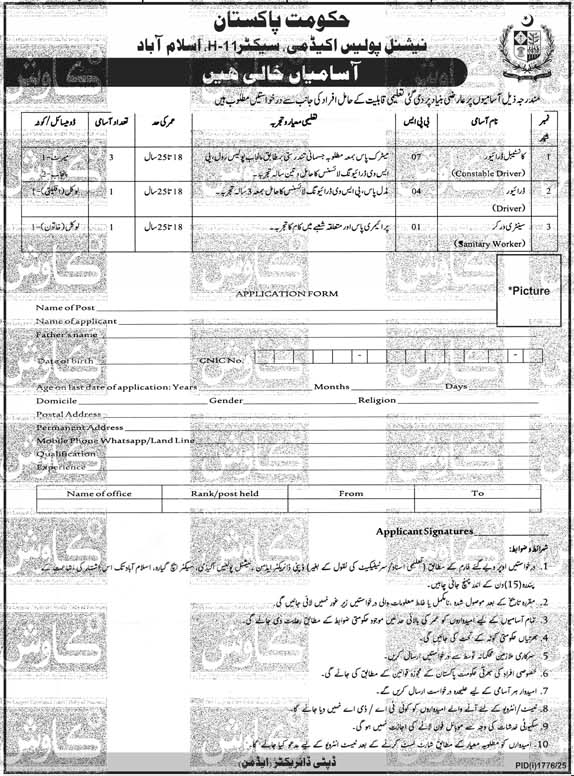 حکومت پاکستان
نیشنل پولیس اکیڈمی، سیکٹر H-11، اسلام آباد
آسامیاں خالی ہیں
مندرجہ ذیل آسامیوں پر عارضی بنیاد پر دی گئی تعلیمی قابلیت کے حامل افراد کی جانب سے درخواستیں مطلوب ہیں
نمبر شمار | نام آسامی | بی پی ایس | تعلیمی معیار و تجربہ | عمر کی حد | تعداد آسامی | ڈومیسائل/کوٹہ
1 | کانسٹیبل ڈرائیور (Constable Driver) | 07 | میٹرک پاس بمعہ مطلوبہ جسمانی تندرستی بمطابق پنجاب پولیس رولز، پی ایس وی ڈرائیونگ لائسنس کا حامل و تین سالہ تجربہ۔ | 18 تا 25 سال | 3 | میرٹ-1 پنجاب-2
2 | ڈرائیور (Driver) | 04 | مڈل پاس، پی ایس وی ڈرائیونگ لائسنس کا حامل بمعہ 3 سالہ تجربہ۔ | 18 تا 25 سال | 1 | لوکل (اقلیتی)-1
3 | سینٹری ورکر (Sanitary Worker) | 01 | پرائمری پاس اور متعلقہ شعبے میں کام کا تجربہ۔ | 18 تا 25 سال | 1 | لوکل (خاتون)-1
*Picture
APPLICATION FORM
Name of Post
Name of applicant
Father's name
Date of birth CNIC No. - -
Age on last date of application: Years Months Days
Domicile Gender Religion
Postal Address
Permanent Address
Mobile Phone Whatsapp/Land Line
Qualification
Experience
Name of office | Rank/post held | From | To
Applicant Signatures
شرائط و ضوابط:
1. درخواستیں اوپر دیے گئے فارم کے مطابق (تعلیمی اسناد/سرٹیفکیٹ کی نقول کے بغیر) ڈپٹی ڈائریکٹر ایڈمن، نیشنل پولیس اکیڈمی، سیکٹر ایچ گیارہ، اسلام آباد تک اس اشتہار کی اشاعت کے
پندرہ (15) دن کے اندر پہنچ جانی چاہیں۔
2. مقررہ تاریخ کے بعد موصول شدہ، نامکمل یا غلط معلومات والی درخواستیں زیر غور نہیں لائی جائیں گی۔
3. تمام آسامیوں کے لیے امیدواروں کو عمر کی بالائی حد میں موجود حکومتی ضوابط کے مطابق رعایت دی جائے گی۔
4. بھرتیاں حکومتی کوٹہ کے تحت کی جائیں گی۔
5. سرکاری ملازمین محکمانہ توسط سے درخواستیں ارسال کریں۔
6. خصوصی افراد کی بھرتی حکومت پاکستان کے مجوزہ قوانین کے مطابق کی جائے گی۔
7. امیدوار ہر آسامی کے لیے علیحدہ درخواست ارسال کریں گے۔
8. ٹیسٹ/انٹرویو کے لیے آنے والے امیدواروں کو کوئی ٹی اے / ڈی اے نہیں دیا جائے گا۔
9. سکیورٹی خدشات کی وجہ سے موبائل فون لانے کی اجازت نہیں ہو گی۔
10. امیدواروں کو مطلوبہ معیار کے مطابق شارٹ لسٹ کرنے کے بعد ٹیسٹ انٹرویو کے لیے مدعو کیا جائے گا۔
ڈپٹی ڈائریکٹر (ایڈمن)
PID(i)1776/25
کاوش